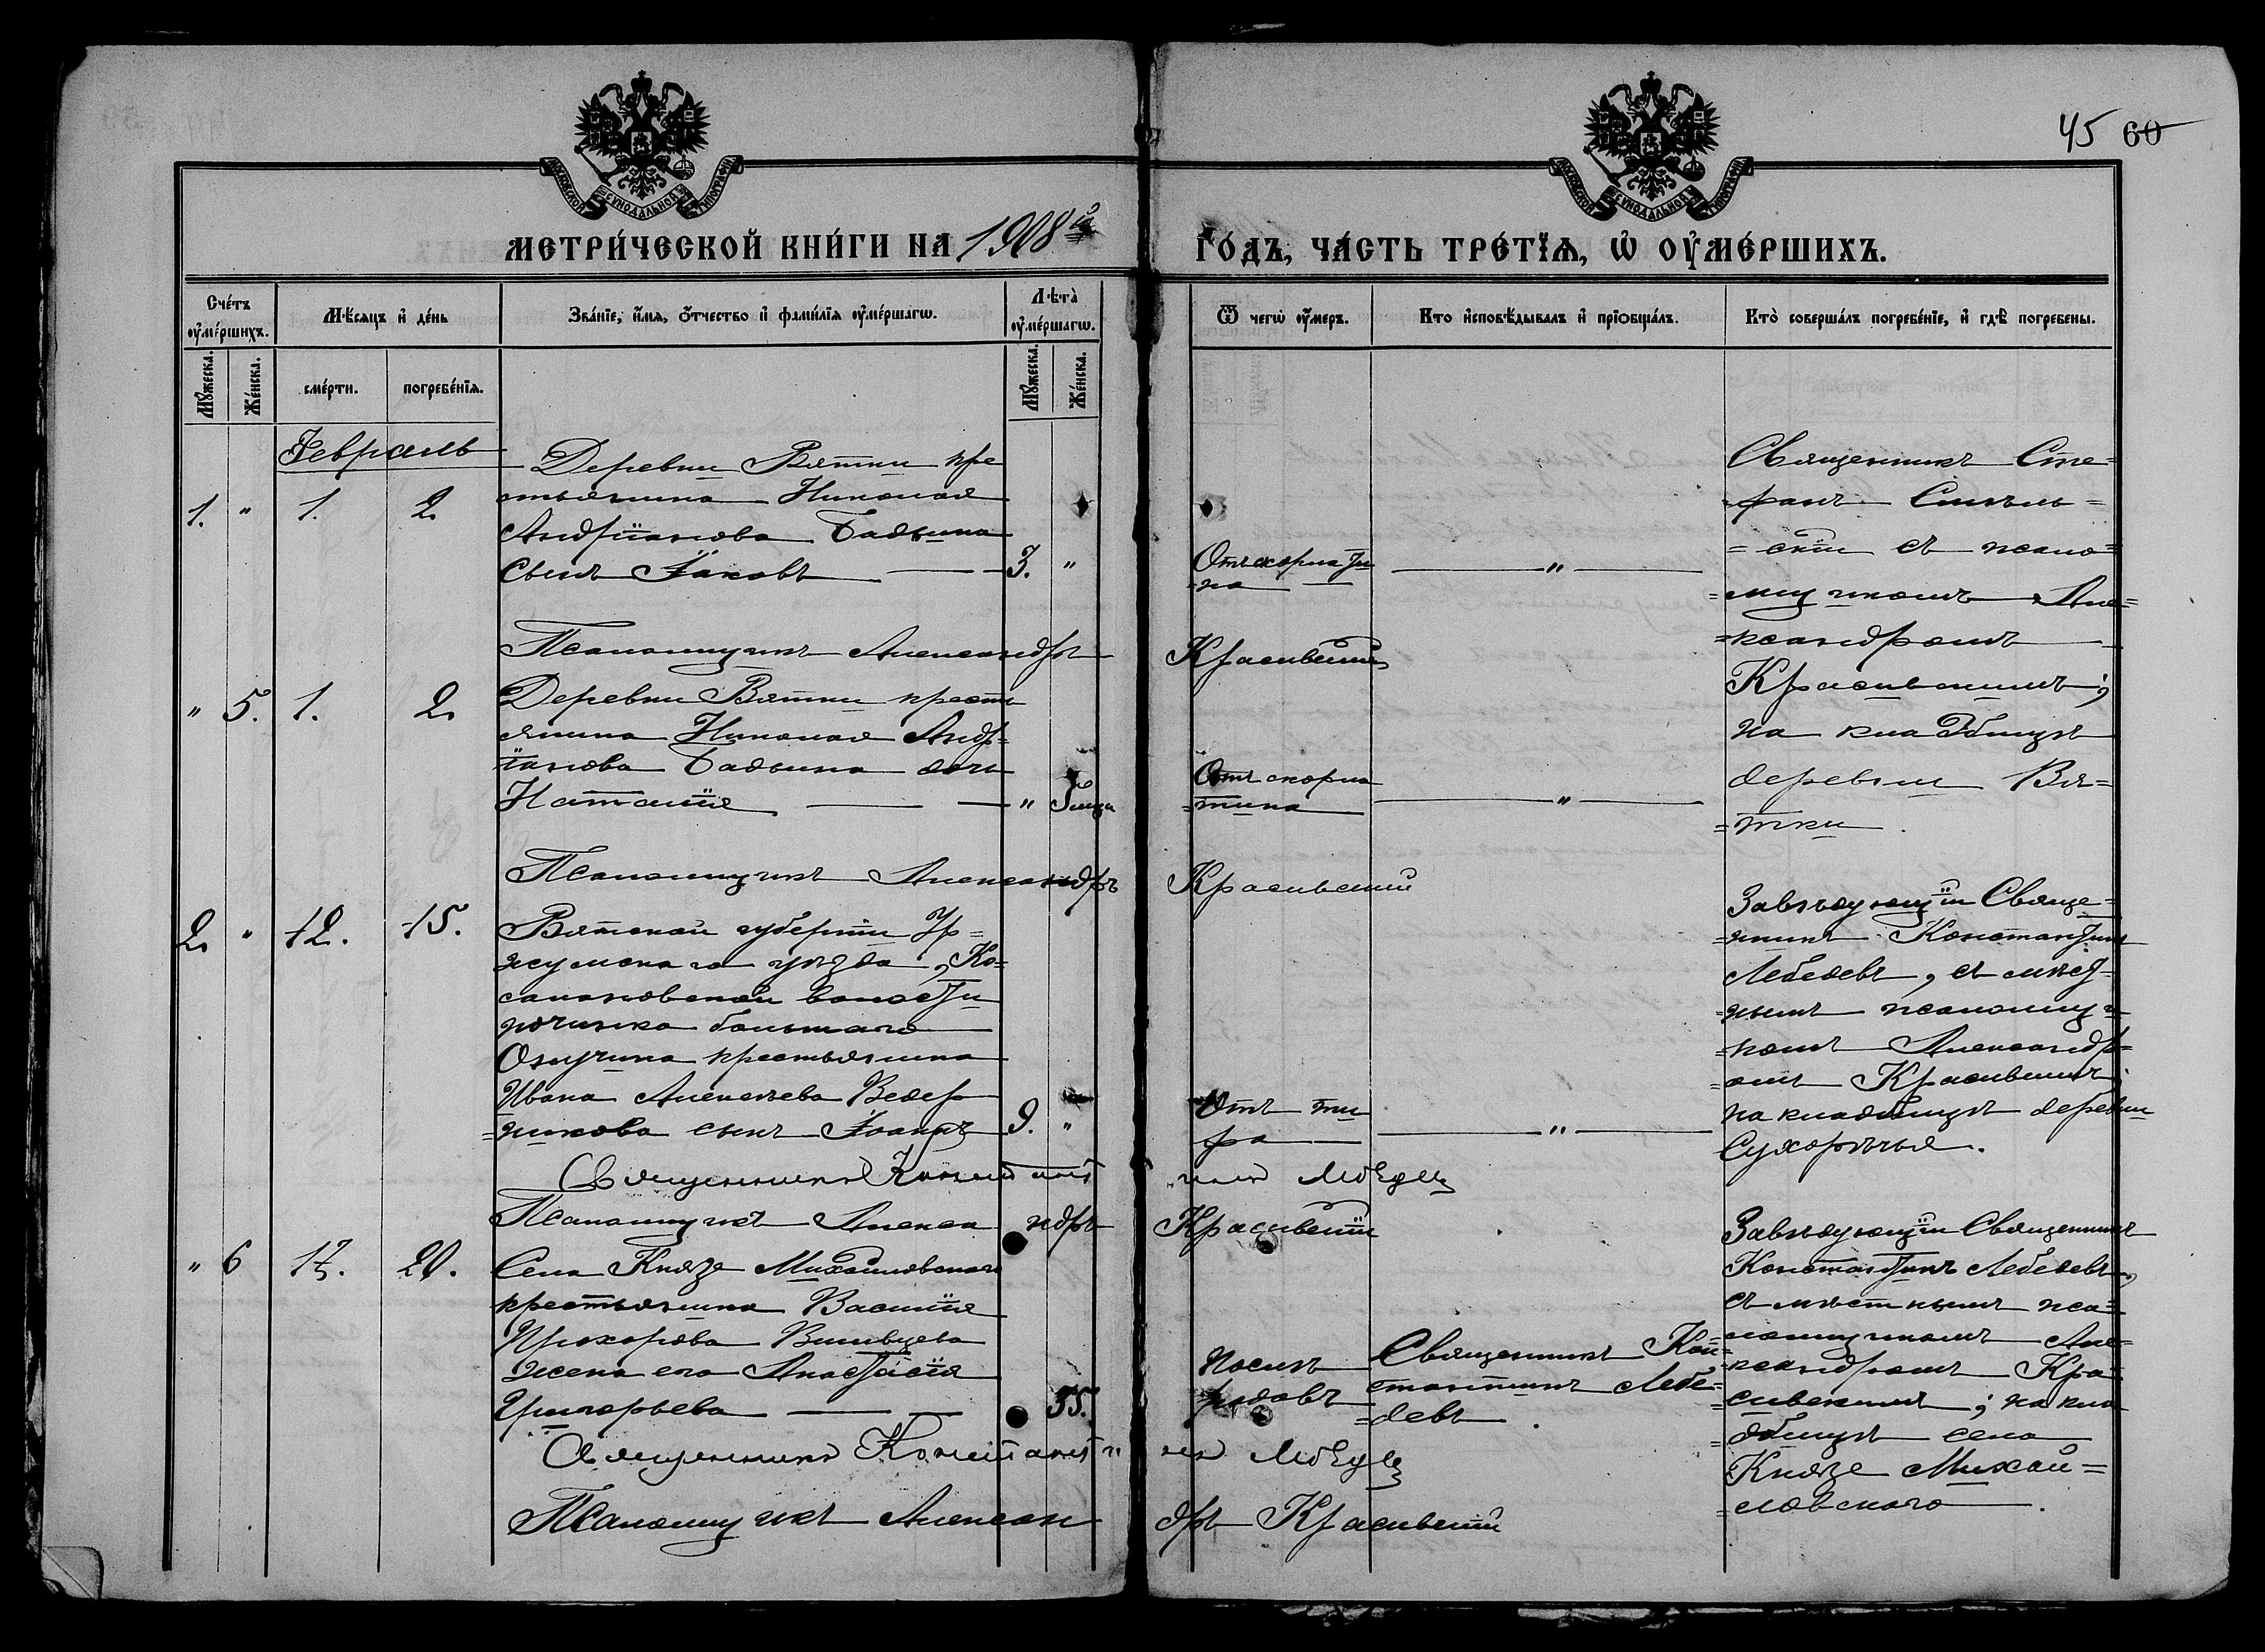 45 60
МОСКОВСКОЙ СѴНОДАЛЬНОЙ ТИПОГРАФІИ
МОСКОВСКОЙ СѴНОДАЛЬНОЙ ТИПОГРАФІИ
МЕТРИ́ЧЕСКОЙ КНИ́ГИ НА 1908й
ГО́ДЪ, ЧА́СТЬ ТРЕ́ТІѦ, Ѡ҆ ОУ҆МЕ́РШИХЪ.
Сче́тъ оу҆ме́ршихъ.
Мꙋ́жеска.
Же́нска.
Мѣ́сяцъ и҆ де́нь
сме́рти.
погребе́нїя.
Зва́нїе, и҆́мя, ѻ҆́тчество и҆ фами́лїя оу҆ме́ршагѡ.
Лѣ́та оу҆ме́ршагѡ.
Мꙋ́жеска.
Же́нска.
Ѿ чегѡ̀ оу҆́меръ.
Кто̀ и҆сповѣ́дывалъ и҆ прїѻбща́лъ.
Кто̀ соверша́лъ погребе́нїе, и҆ гдѣ̀ погребены.
Февраль
1. " 1. 2.
Деревни Вятки кре
стьянина Николая
Андріанова Бадьина
сынъ Іаковъ 3. "
Отъ скорлати
на "
Священникъ Сте=
=фанъ
=скій съ псало=
=мщикомъ Але=
=ксандромъ
Красивскимъ;
на кладбищѣ
деревни Вя=
=тки.
Псаломщикъ Александръ Красивскій
" 5. 1. 2.
Деревни Вятки кресть
янина Николая Андр=
іанова Бадьина дочь
Наталія "
Отъ скорла
=тина "
Псаломщикъ Александръ Красивскій
2. " 12. 15.
Вятской губерніи Ур=
жумскаго уѣзда, Ко=
волости
починка большаго
крестьянина
Ивана Алексѣева Ведер
=никова сынъ Іоаннъ 9. "
Отъ ти
фа "
Завѣдующій Свяще=
=нникъ Константинъ
Лебедевъ, съ мѣст=
=нымъ псаломщи=
=комъ Александр=
=омъ Красивскимъ;
на кладбищѣ деревни
Сухорѣчья.
Священникъ Константинъ Лебедевъ
Псаломщикъ Александръ Красивскій
" 6 17. 20.
Села Князе Михайловскаго
крестьянина Василія
Прохорова
жена его Анастасія
Григорьева 55.
После
родовъ
Священникъ Кон=
стантинъ Лебе=
=девъ.
Завѣдующій Священникъ
Константинъ Лебедевъ,
съ мѣстнымъ пса=
ломщикомъ Але=
=ксандромъ Кра=
=сивскимъ; на кла
=дбищѣ села
Князе Михай=
=ловскаго.
Священникъ Константинъ Лебедевъ
Псаломщикъ Александръ Красивскій